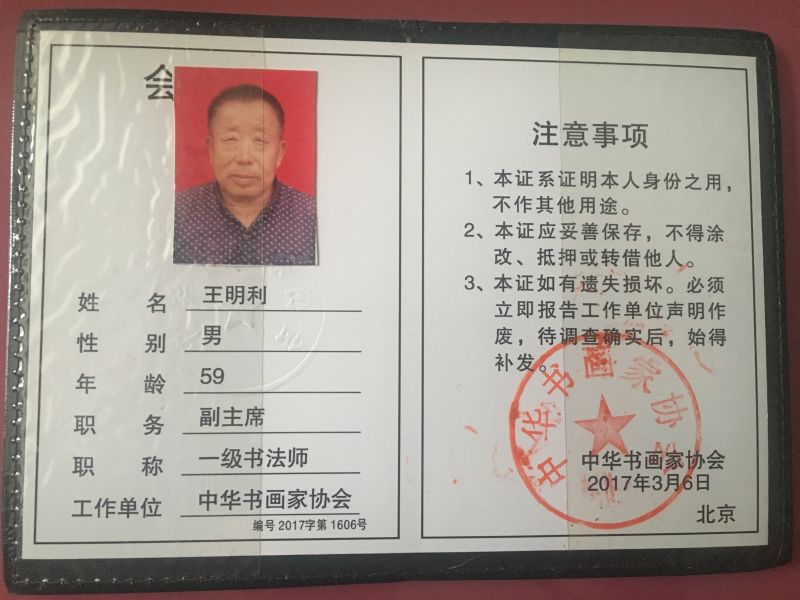 会
姓 名 王明利
性 别 男
年 龄 59
职 务 副主席
职 称 一级书法师
工作单位 中华书画家协会
编号 2017字第 1606号
注意事项
1、本证系证明本人身份之用，
不作其他用途。
2、本证应妥善保存，不得涂
改、抵押或转借他人。
3、本证如有遗失损坏。必须
立即报告工作单位声明作
废，待调查确实后，始得
补发。
中华书画家协会
中华书画家协会
2017年3月6日
北京